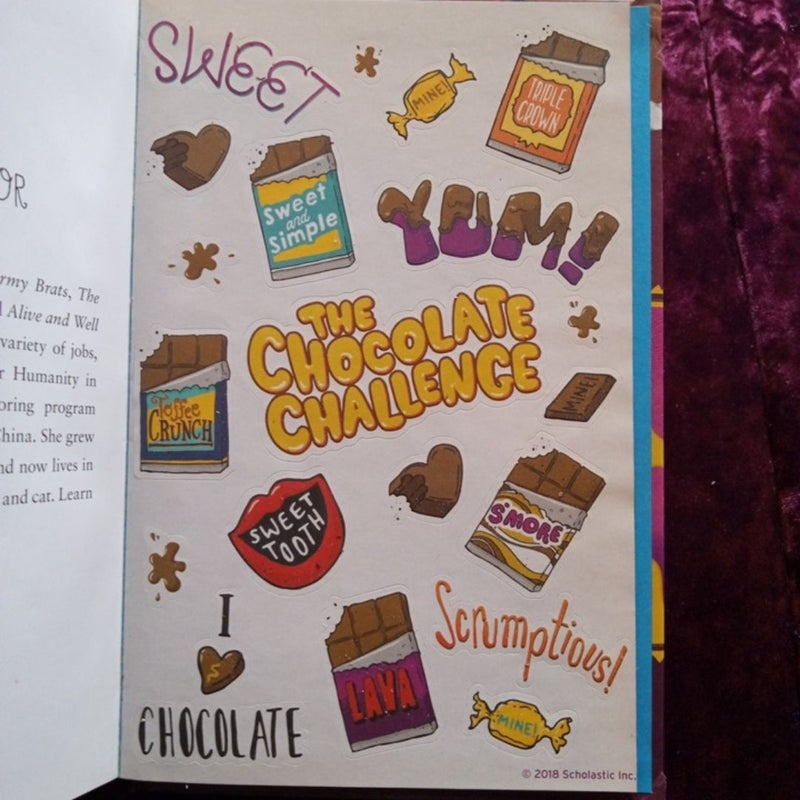 OR
rmy Brats, The
Alive and Well
variety of jobs,
Humanity in
oring program
hina. She grew
nd now lives in
and cat. Learn
SWEET
MINE!
TRIPLE
CROWN
Sweet
and
Simple
YUM!
THE
CHOCOLATE
CHALLENGE
Toffee
CRUNCH
MINE!
SWEET
TOOTH
S'MORE
I
CHOCOLATE
LAVA
Scrumptious!
MINE!
© 2018 Scholastic Inc.